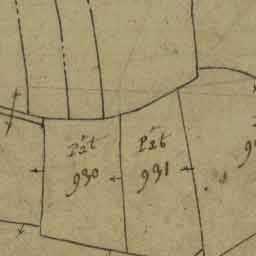 Pât
930
Pât
931